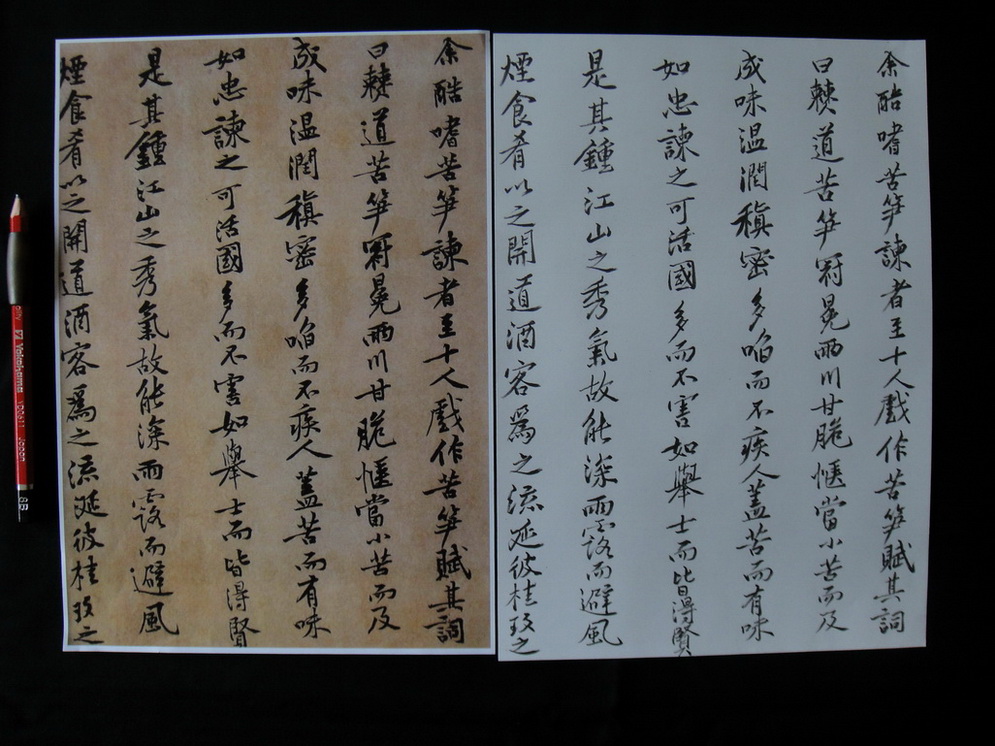 余酷嗜苦笋諫者至十人戲作苦笋賦其詞
曰僰道苦笋冠冕兩川甘脆愜當小苦而及
成味温潤稹密多啗而不疾人蓋苦而有味
如忠諫之可活國多而不害如舉士而皆得賢
是其鍾江山之秀氣故能深雨露而避風
煙食肴以之開道酒客爲之流涎彼桂玫之
余酷嗜苦笋諫者至十人戲作苦笋賦其詞
曰僰道苦笋冠冕兩川甘脆愜當小苦而及
成味温潤稹密多啗而不疾人蓋苦而有味
如忠諫之可活國多而不害如舉士而皆得賢
是其鍾江山之秀氣故能深雨露而避風
煙食肴以之開道酒客爲之流涎彼桂玫之
Yokohama
Japan
6B